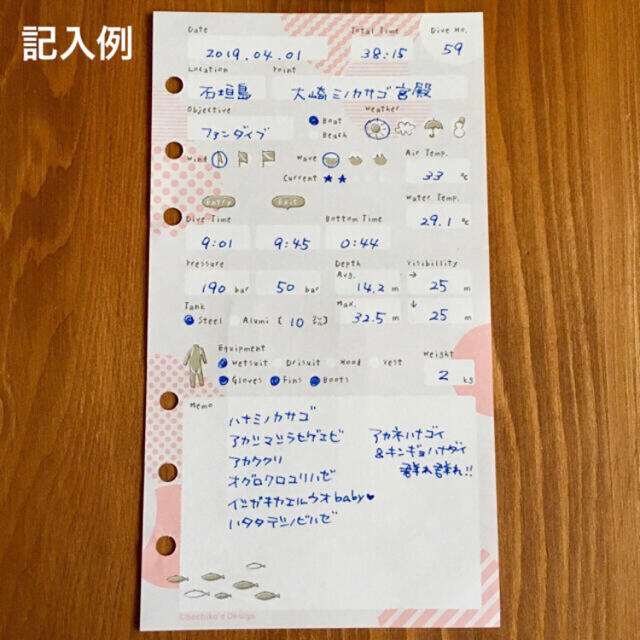 記入例
Date Total Time Dive No.
2019.04.01 38:15 59
Location Point
石垣島 大崎ミノカサゴ宮殿
Objective Boat Weather
ファンダイブ Beach
Wind Wave Air Temp.
Current ★★ 33 ℃
Entry Exit Water Temp.
Dive Time Bottom Time 29.1 ℃
9:01 9:45 0:44
Pressure Depth Visibillity
Avg. →
190 bar 50 bar 14.2 m 25 m
Tank Max. ↓
Steel Alumi [ 10 ㍑ ] 32.5 m 25 m
Equipment Weight
Wetsuit Drisuit Hood Vest
Gloves Fins Boots 2 kg
Memo
ハナミノカサゴ
アカシマシラヒゲエビ アカネハナゴイ
アカククリ &キンギョハナダイ
オグロクロユリハゼ 群れ群れ!!
イシガキカエルウオbaby♥
ハタタテシノビハゼ